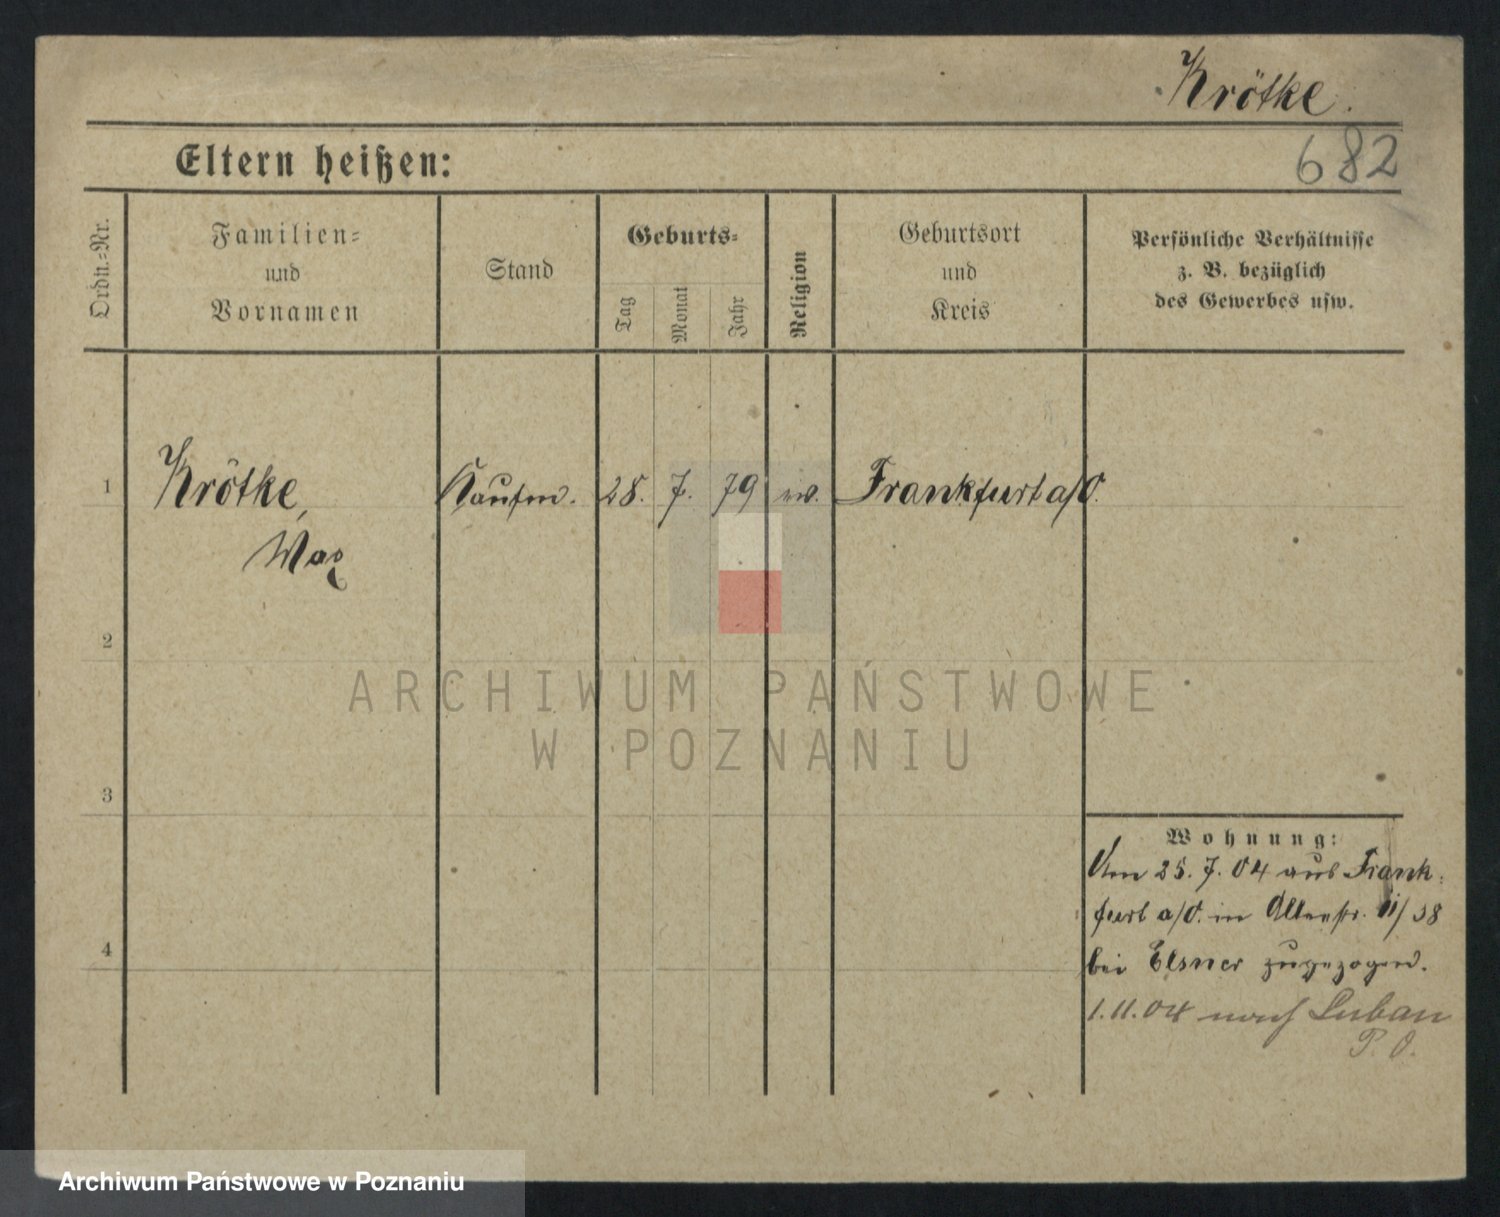 Krötke.
682
Eltern heißen:
Ordn.-Nr.
Familien-
und
Vornamen
Stand
Geburts-
Tag
Monat
Jahr
Religion
Geburtsort
und
Kreis
Persönliche Verhältnisse
z. B. bezüglich
des Gewerbes usw.
1 Krötke, Kaufm. 28. 7. 79 ev. Frankfurt a/O.
Max
2
ARCHIWUM PAŃSTWOWE
W POZNANIU
3
Wohnung:
Am 25. 7. 04 aus Frank-
furt a/O. in
bei Elsner zugezogen.
4
1.11.04 nach Luban
P. O.
Archiwum Państwowe w Poznaniu